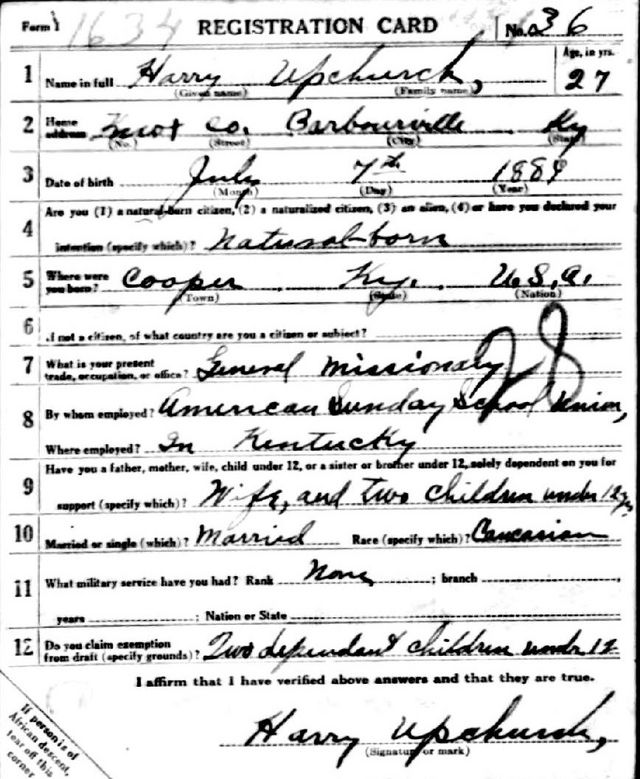 Form 1 1634 REGISTRATION CARD No. 36
1 Name in full Harry Upchurch, Age, in yrs. 27
(Given name) (Family name)
2 Home address Knox Co. Barbourville Ky
(No.) (Street) (City) (State)
3 Date of birth July 7th 1889
(Month) (Day) (Year)
Are you (1) a natural-born citizen, (2) a naturalized citizen, (3) an alien, (4) or have you declared your
4 intention (specify which)? Natural-born
5 Where were you born? Cooper Ky. U.S.A.
(Town) (State) (Nation)
6 If not a citizen, of what country are you a citizen or subject?
7 What is your present trade, occupation, or office? General Missionary 28
8 By whom employed? American Sunday School Union,
Where employed? In Kentucky
Have you a father, mother, wife, child under 12, or a sister or brother under 12, solely dependent on you for
9 support (specify which)? Wife, and two children under 12 yrs
10 Married or single (which)? Married Race (specify which)? Caucasian
11 What military service have you had? Rank None ; branch
years ; Nation or State
12 Do you claim exemption from draft (specify grounds)? Two dependant children under 12
I affirm that I have verified above answers and that they are true.
Harry Upchurch,
(Signature or mark)
If person is of
African descent,
tear off this
corner